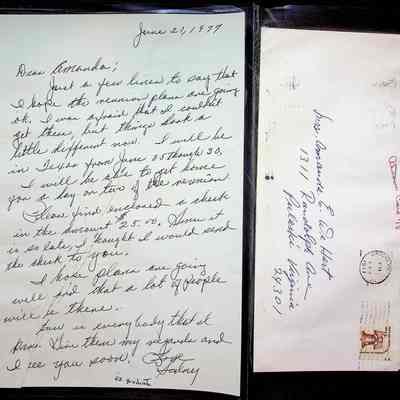 June 21, 1977
Dear Amanda;
Just a few lines to say that
I hope the reunion plans are going
ok. I was afraid that I couldn't
get there, but things look a
little different now. I will be
in Texas from June 25 through 30,
I will be able to get home
a day or two of the reunion
Please find enclosed a check
in the amount $25.00. Since it
is so late, I thought I would send
the check to you.
I hope plans are going
well and that a lot of people
will be there.
Give everybody that I
know. Give them my regards and
I see you soon. Love
Mrs. Amanda E. DeHart
1311 Randolph Ave
Pulaski Virginia
24301